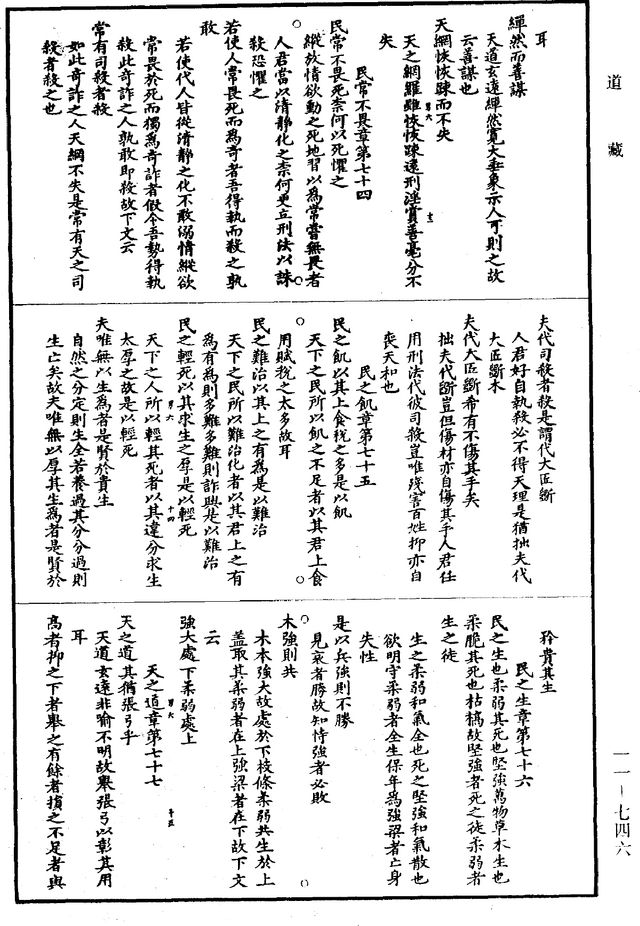 道藏
耳
繟然而善謀
天道玄遠繟然寬大垂象示人可則之故
云善謀也
天網恢恢踈而不失
男六
十三
天之網羅雖恢恢踈遠刑淫賞善毫分不
失
民常不畏章第七十四
民常不畏死柰何以死懼之
縱放情欲動之死地習以為常嘗無畏者
人君當以清静化之柰何更立刑法以誅
殺恐懼之
若使人常畏死而為奇者吾得執而殺之孰
敢
若使代人皆從清静之化不敢溺情縱欲
常畏於死而獨為奇詐者假令吾勢得執
殺此奇詐之人孰敢即殺故下文云
常有司殺者殺
如此奇詐之人天網不失是常有天之司
殺者殺之也
夫代司殺者殺是謂代大匠斲
人君好自執殺必不得天理是猶拙夫代
大匠斲木
夫代大匠斲希有不傷其手矣
拙夫代斲豈但傷材亦自傷其手人君任
用刑法代彼司殺豈唯殘害百姓抑亦自
喪天和也
民之飢章第七十五
民之飢以其上食稅之多是以飢
天下之民所以飢之不足者以其君上食
用賦稅之太多故耳
民之難治以其上之有為是以難治
天下之民所以難治化者以其君上之有
為有為則多難多難則詐興是以難治
民之輕死以其求生之厚是以輕死
男六
十四
天下之人所以輕其死者以其違分求生
太厚之故是以輕死
夫唯無以生為者是賢於貴生
自然之分定則生全若養過其分分過則
生亡矣故夫唯無以厚其生為者是賢於
矜貴其生
民之生章第七十六
民之生也柔弱其死也堅強萬物草木生也
柔脆其死也枯槁故堅強者死之徒柔弱者
生之徒
生之柔弱和氣全也死之堅強和氣散也
欲明守柔弱者全生保年為強梁者亡身
失性
是以兵強則不勝
見哀者勝故知恃強者必敗
木強則共
木本強大故處於下枝條柔弱共生於上
蓋取其柔弱者在上強梁者在下故下文
云
強大處下柔弱處上
男六
十五
天之道章第七十七
天之道其猶張弓乎
天道玄遠非喻不明故舉張弓以彰其用
耳
高者抑之下者舉之有餘者損之不足者與
一一－七四六